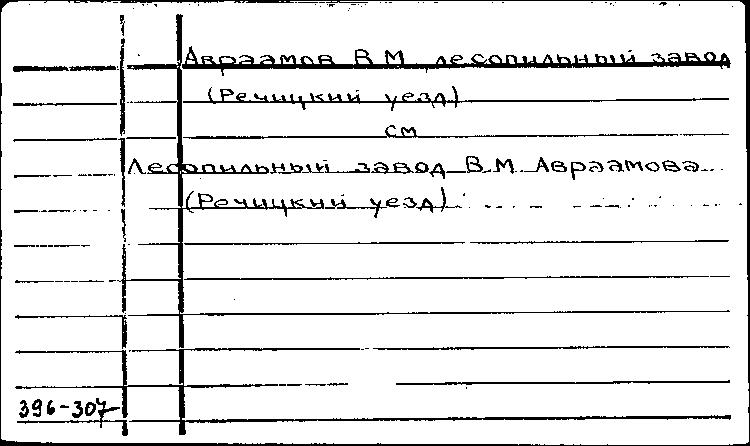 Авраамов В М лесопильный завод
(Речицкий уезд)
см
Лесопильный завод В. М. Авраамова
(Речицкий уезд)
396-307